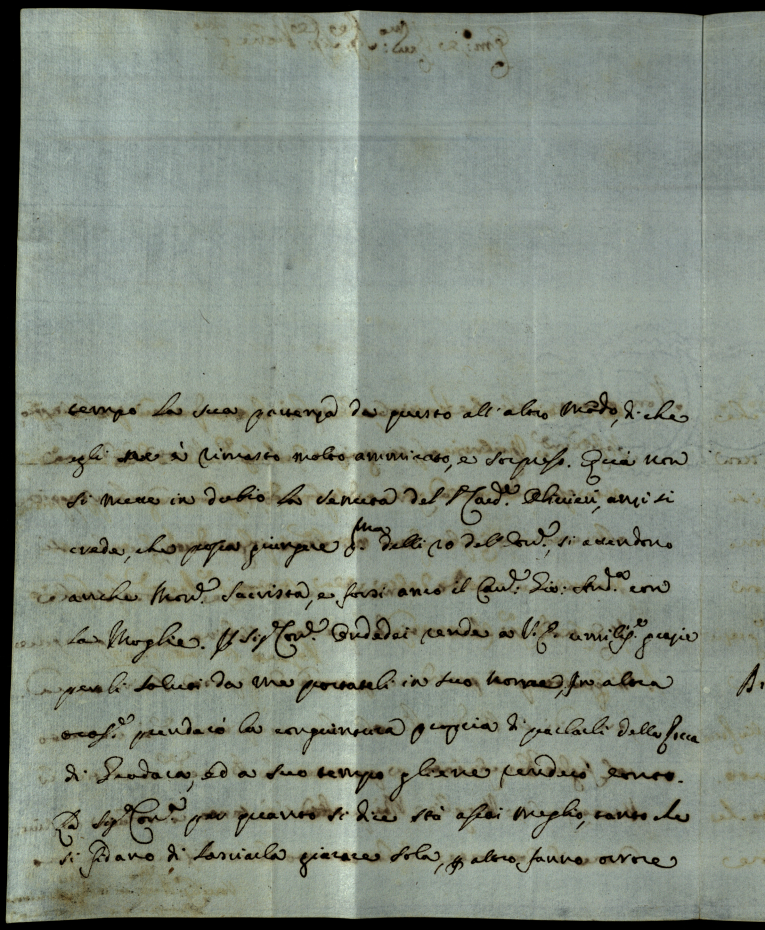 tempo la sua partenza da questo all'altro Mōdo, di che
egli ne è rimasto molto ammirato, e sorpreso. Quà non
si mette in dubio la venuta del Sig.r Card.e Olivieri, anzi si
crede, che possa giungere p.ma delli 20 del Cor.e, si attendono
anche Mon.r Sacrista, e forsi anco il Cav.e Gio: And.a con
la Moglie. Il Sig.r Con.e render a V. E. umiliss.e grazie
per li saluti da me portateli in suo nome, In altra
occas.e prenderò la congiuntura propria di parlarli della
di ed a suo tempo gliene renderò conto.
La Sig.ra Con.a per quanto si dice stà assai meglio, tanto che
si fidano di lasciarla giacere sola, p altro fanno orrore